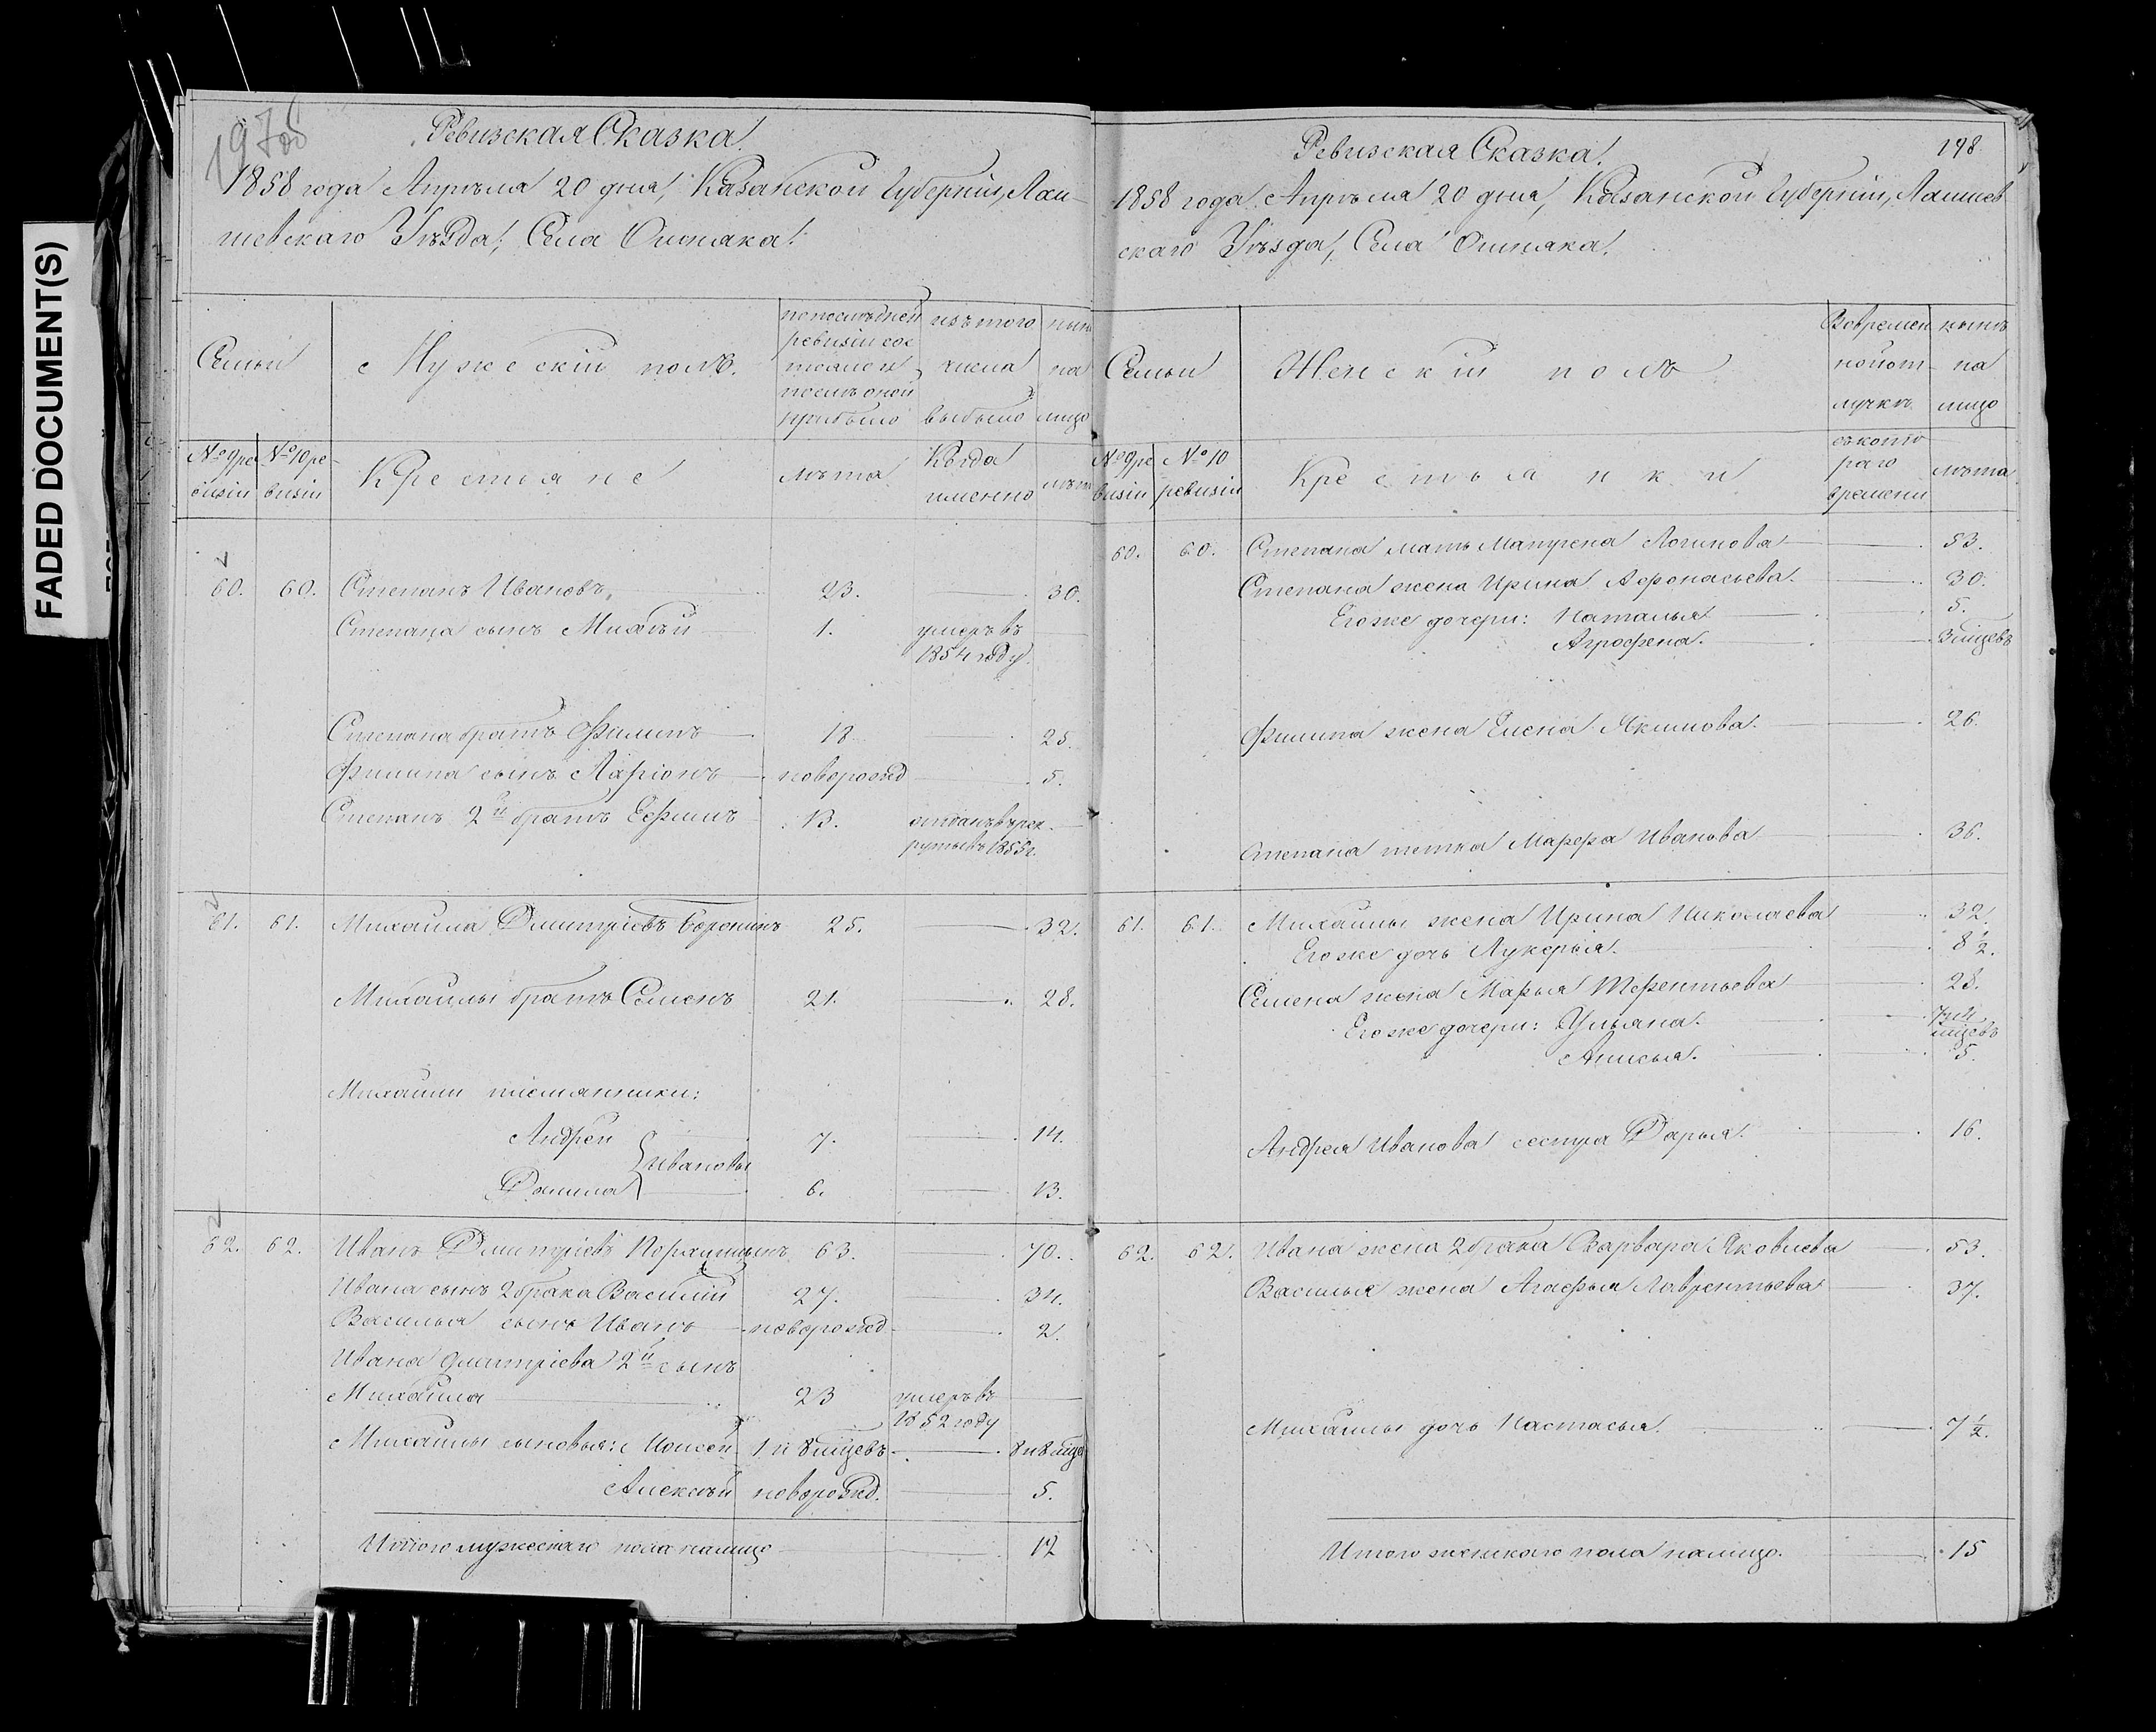 FADED DOCUMENT(S)
197об
Ревизская Сказка.
1858 года Апрѣля 20 дня, Казанской Губерніи, Лаи-
шевскаго Уѣзда, Села Ошняка.
Семьи
Мужескій полъ.
по послѣдней ревизіи состояло и послѣ оной прибыло
изъ того числа выбыло
нынѣ на лицо
№ 9 ревизіи
№ 10 ревизіи
Крестьяне
лѣта
Когда именно
лѣта
60. 60. Степанъ Ивановъ 23. 30.
Степана сынъ Михѣй 1. умеръ въ
1854 году
Степана братъ Филипъ 18 25.
Филипа сынъ Ларіонъ новорожд 5.
Степанъ 2й братъ Ефимъ 13. отданъ въ рек
руты въ 1855 г.
61. 61. Михаила Дмитріевъ 25. 32.
Михаилы братъ Семенъ 21. 28.
Михаилы племянники:
Андрей 7. 14.
Ивановы
Данила 6. 13.
62. 62. Иванъ Дмитріевъ 63. 70.
Ивана сынъ 2 брака Василій 27. 34.
Василья сынъ Иванъ новорожд 2.
Ивана Дмитріева 2й сынъ
Михаила 23 умеръ въ
1852 году
Михаилы сыновья: Моисей 1 и 8 мцевъ 8 и 8 мце
Алексѣй новорожд. 5.
Итого мужескаго пола налицо 12
Ревизская Сказка.
198
1858 года Апрѣля 20 дня, Казанской Губерніи, Лаишев
скаго Уѣзда, Села Ошняка.
Семьи
Женскій полъ
Во временной отлучкѣ
нынѣ на лицо
№ 9 ревизіи
№ 10 ревизіи
Крестьянки
съ кото
раго
времени
лѣта
60. 60. Степана мать Матрена Логинова 53.
Степана жена Ирина Афонасьева. 30.
Его же дочери: Наталья 5.
Агрофена. 3 мцевъ
Филипа жена Елена Якимова. 26.
Степана тетка Марфа Иванова 36.
61. 61. Михаилы жена Ирина Николаева 32.
Его же дочь Лукерья. 8 1/2.
Семена жена Марья Терентьева 28.
Его же дочери: Ульяна. 7 и 4
мцевъ
Анисья. 5.
Андрея Иванова сестра Дарья. 16.
62. 62. Ивана жена 2 брака Варвара Яковлева 53.
Василья жена Агафья Лаврентьева 37.
Михаилы дочь Настасья. 7 1/2.
Итого женскаго пола налицо. 15